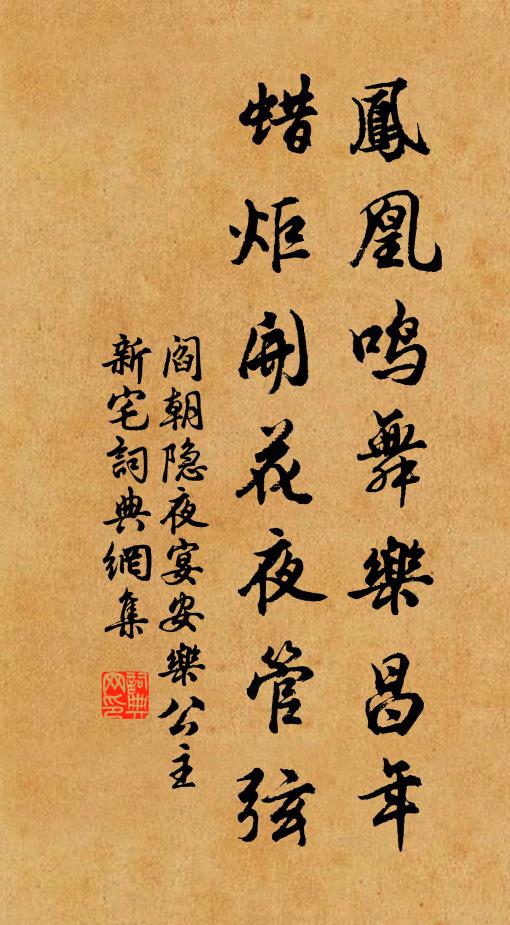 鳳凰鸣舞樂昌年
蜡炬開花夜管弦
阎朝隐夜宴安樂公主
新宅詞典網集
詞典网印